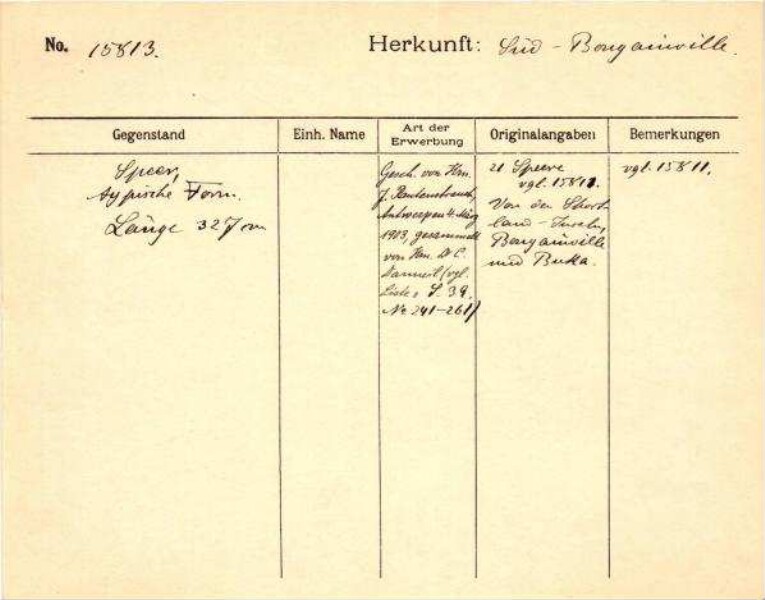 No. 15813.
Herkunft: Süd - Bougainville.
Gegenstand
Einh. Name
Art der Erwerbung
Originalangaben
Bemerkungen
Speer,
typische Form.
Länge 327 cm
Gesch. von Hrn.
J. Rautenstrauch,
Antwerpen 4. März
1903, gesammelt
von Hrn. W. C.
Dannert (vgl.
Liste S. 39.
Nr. 241-261)
21 Speere
vgl. 15811.
Von den Short-
land-Inseln,
Bougainville
und Buka.
vgl. 15811.